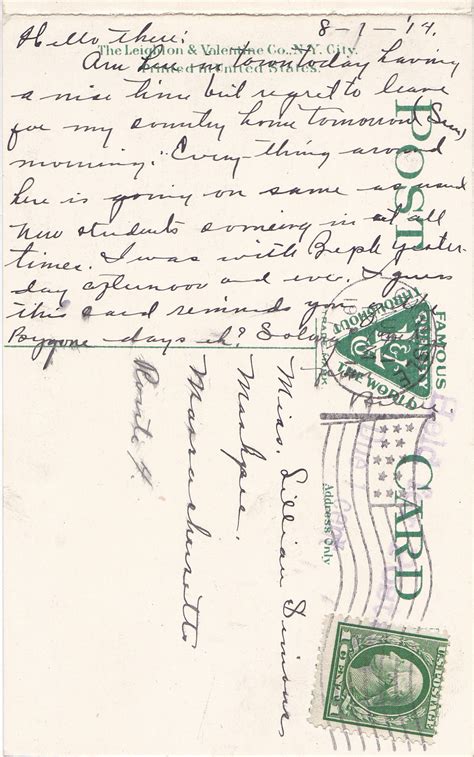 Hello there: 8-7-'14.
The Leighton & Valentine Co., N.Y. City.
Printed in United States.
Am here in town today having
a nise time but regret to leave
for my country home tomorrow (Sun)
morning. Every-thing around
here is going on same as usual
new students someing in at all
times. I was with Beph yester-
day afternoon and eve. I guess
this card reminds you
Bygone days eh?
POST CARD
FAMOUS
THROUGHOUT
THE WORLD
TRADE MARK
Address Only
Miss. Lillian Simons
Mashpee.
Massachusetts
Route 4.
Held
1 cent
U.S. POSTAGE
1 CENT 1